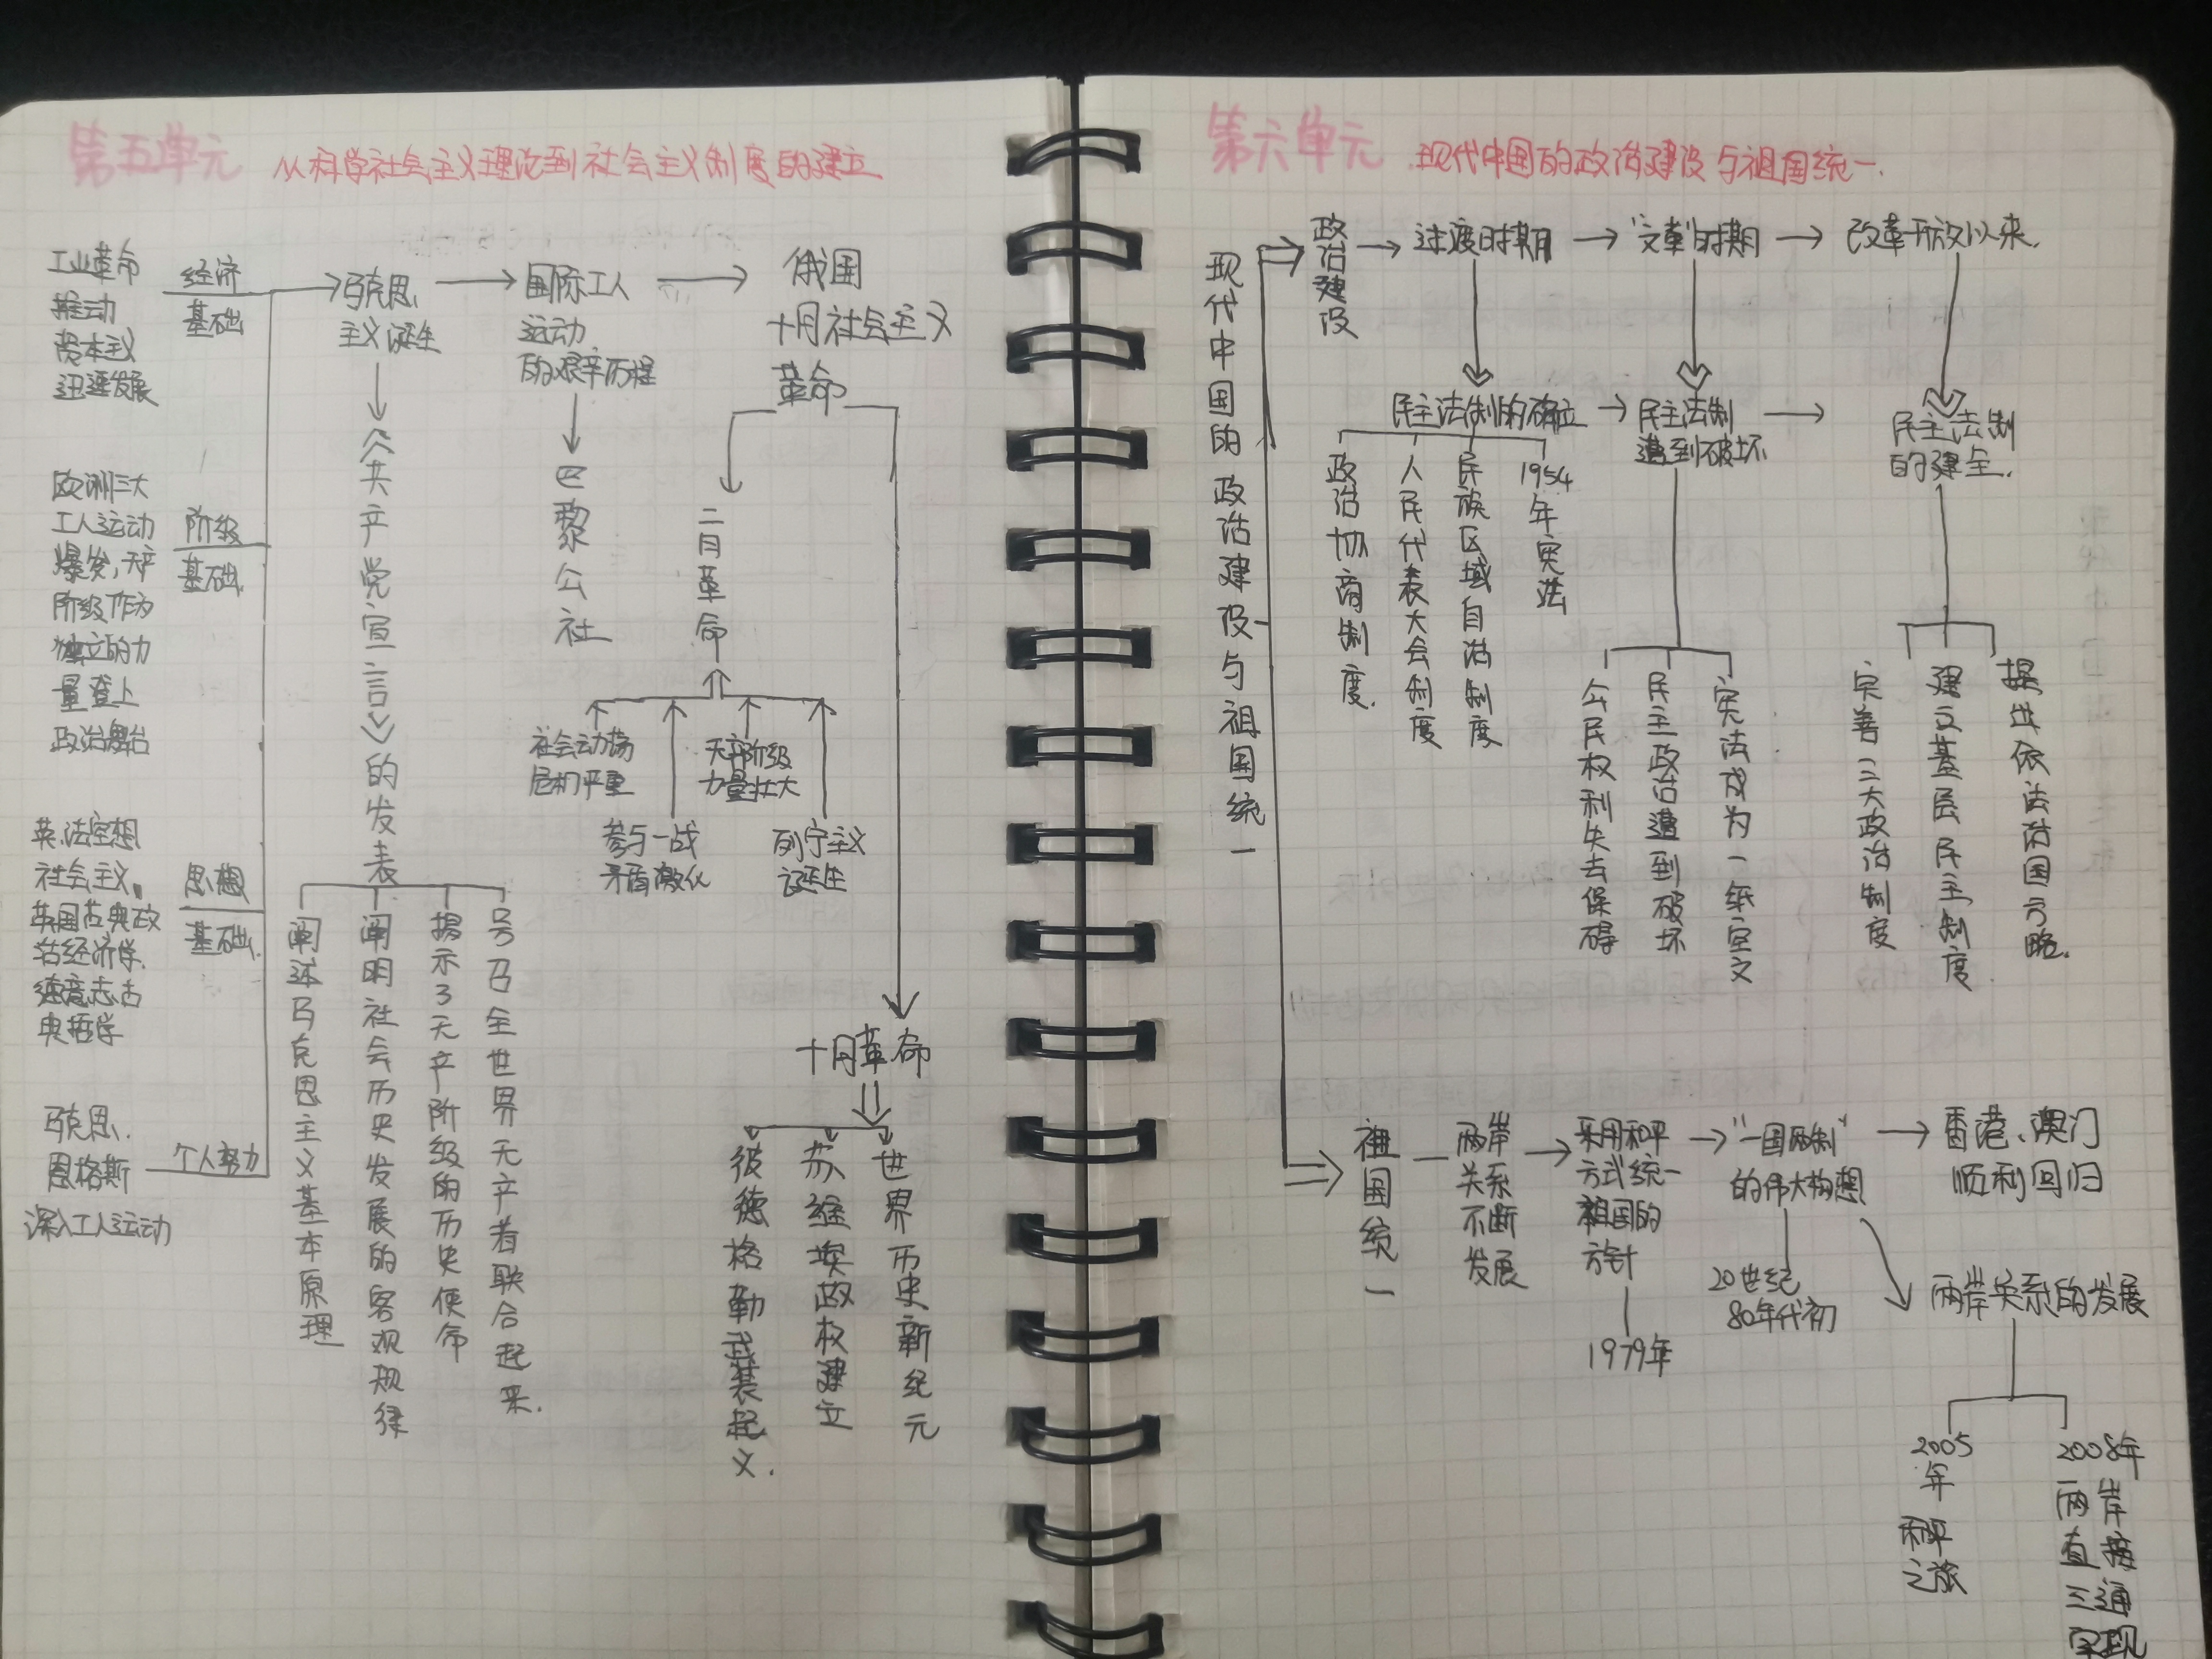 第五单元 从科学社会主义理论到社会主义制度的建立
工业革命
推动
资本主义
迅速发展
经济
基础
欧洲三大
工人运动
爆发，无产
阶级作为
独立的力
量登上
政治舞台
阶级
基础
英、法空想
社会主义、
英国古典政
治经济学、
德意志古
典哲学
思想
基础
马克思、
恩格斯
深入工人运动
个人努力
马克思
主义诞生
《共产党宣言》的发表
阐述马克思主义基本原理
阐明社会历史发展的客观规律
揭示了无产阶级的历史使命
号召全世界无产者联合起来.
国际工人
运动
的艰辛历程
巴黎公社
俄国
十月社会主义
革命
二月革命
社会动荡
危机严重
参与一战
矛盾激化
无产阶级
力量壮大
列宁主义
诞生
十月革命
彼德格勒武装起义.
苏维埃政权建立
世界历史新纪元
第六单元 现代中国的政治建设与祖国统一.
现代中国的政治建设与祖国统一
政治建设
过渡时期
“文革”时期
改革开放以来.
民主法制的确立
政治协商制度.
人民代表大会制度
民族区域自治制度
1954
年宪法
民主法制
遭到破坏
公民权利失去保碍
民主政治遭到破坏
宪法成为一纸空文
民主法制
的建全.
完善三大政治制度
建立基层民主制度
提出依法治国方略.
祖国统一
两岸
关系
不断
发展
采用和平
方式统一
祖国的
方针
1979年
“一国两制”
的伟大构想
20世纪
80年代初
香港、澳门
顺利回归
两岸关系的发展
2005
年
和平
之旅
2008年
两岸
直接
三通
实现